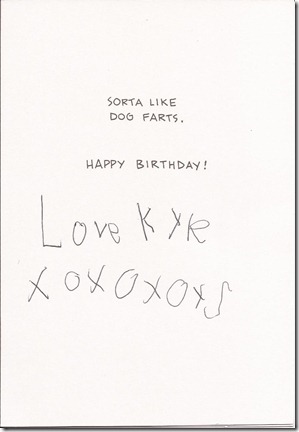 SORTA LIKE
DOG FARTS.
HAPPY BIRTHDAY!
Love
XOXOXOXS